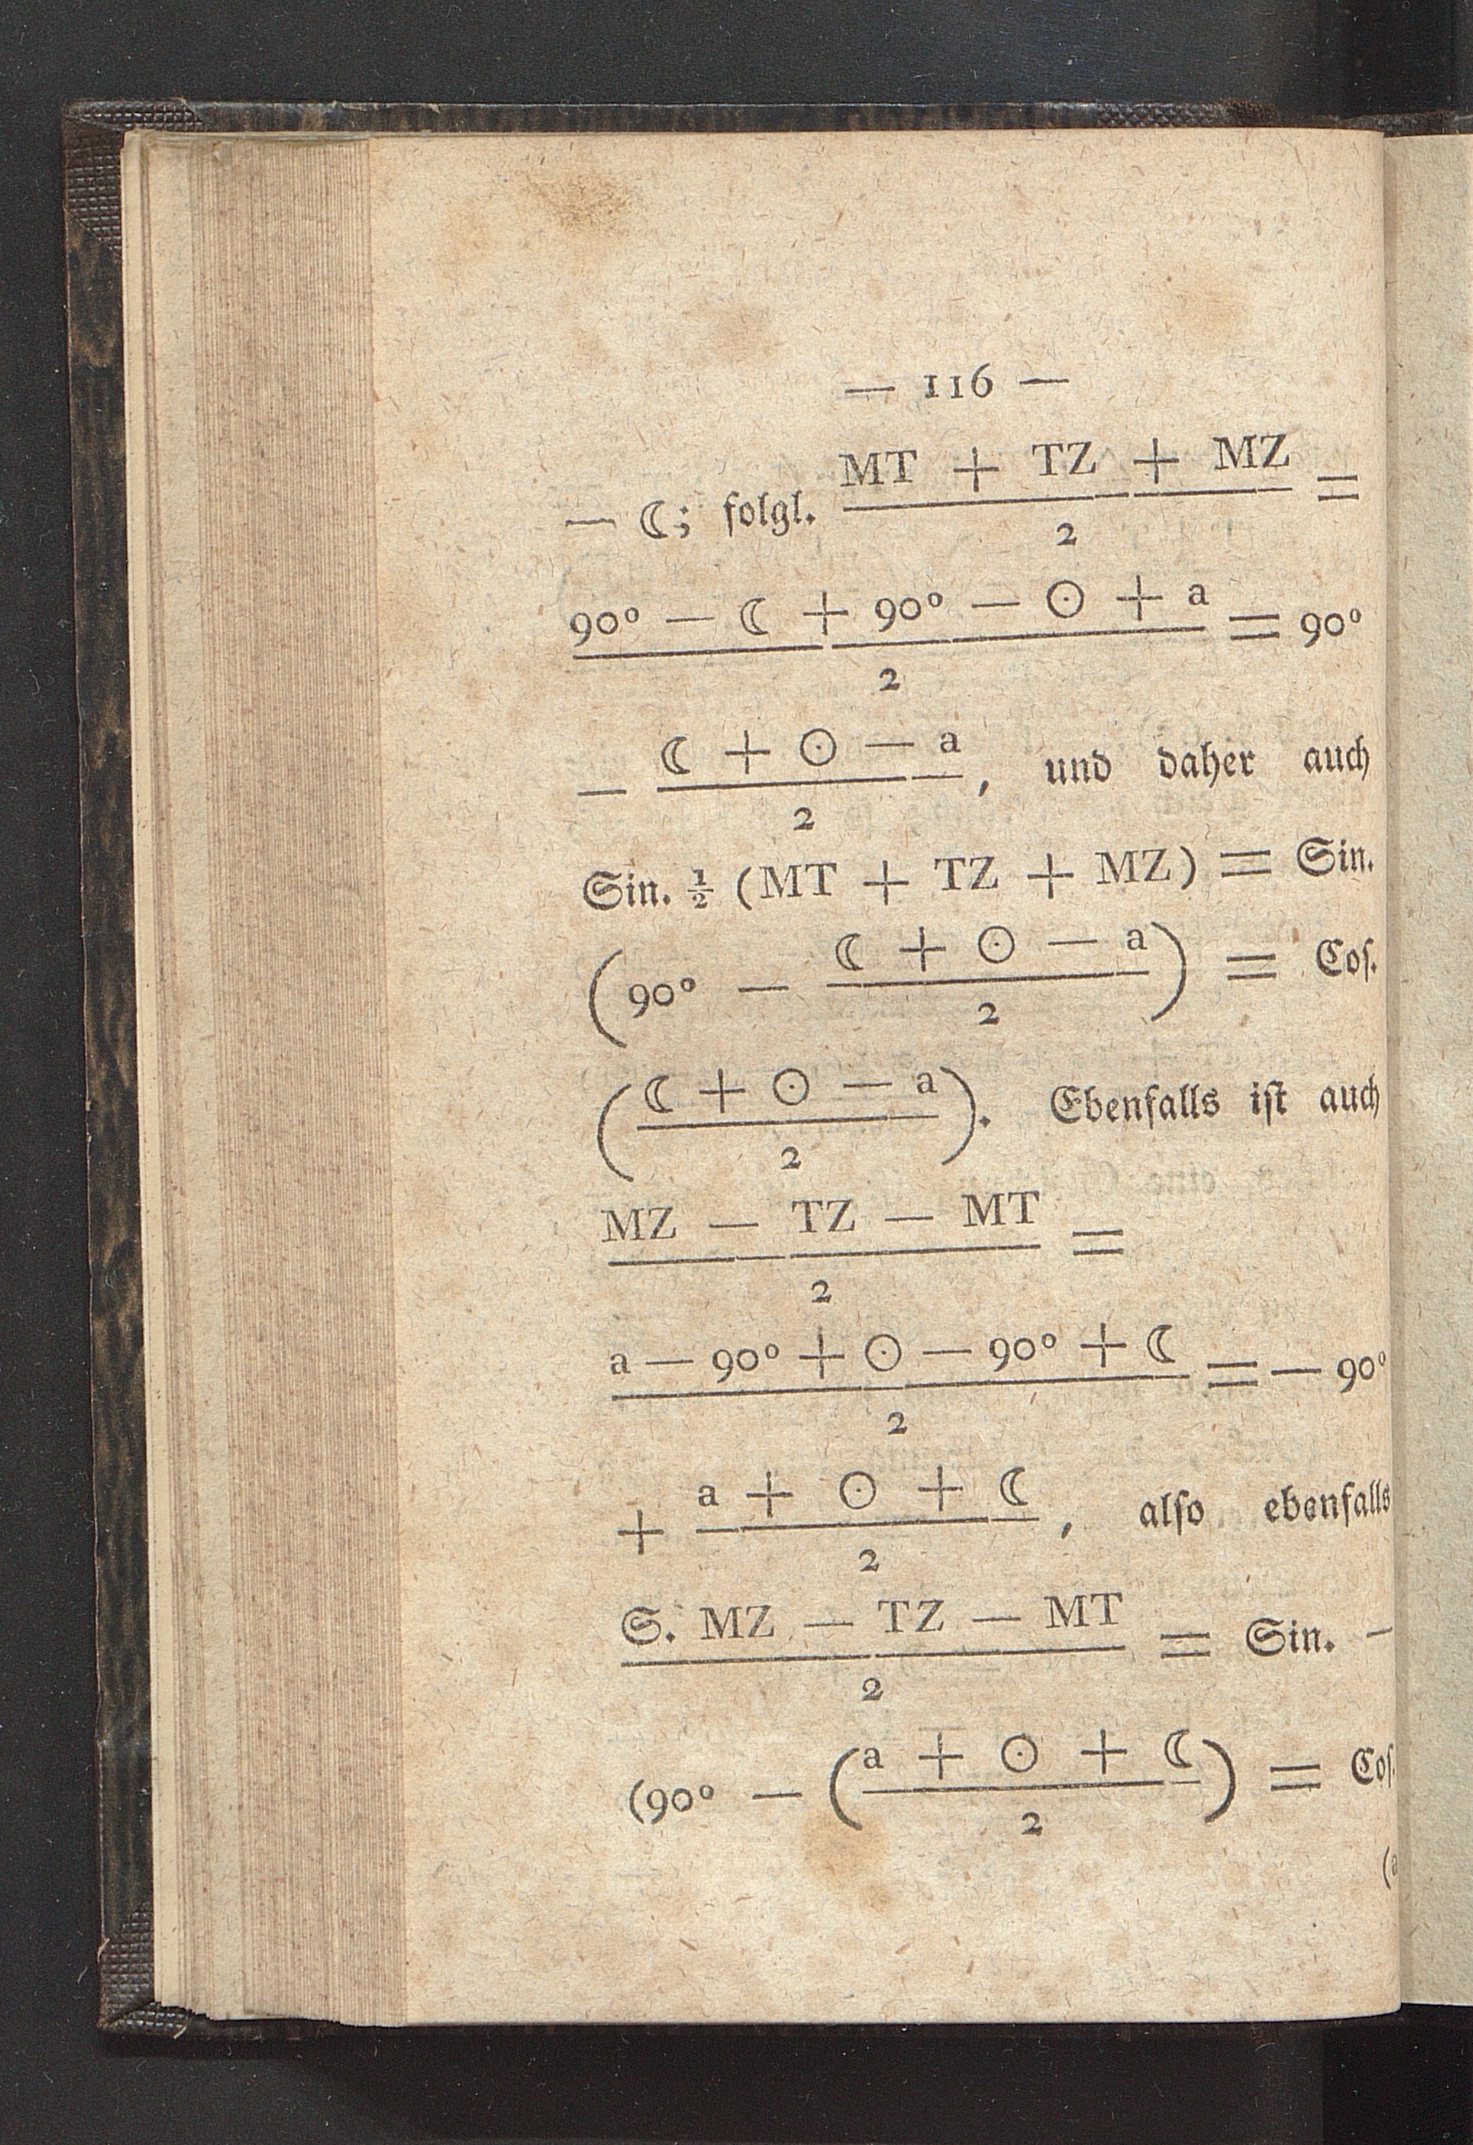 — 116 —
— ☾; folgl. (MT + TZ + MZ)/2 =
(90° — ☾ + 90° — ☉ + a)/2 = 90°
— (☾ + ☉ — a)/2, und daher auch
Sin. ½ (MT + TZ + MZ) = Sin.
(90° — (☾ + ☉ — a)/2) = Coſ.
((☾ + ☉ — a)/2). Ebenfalls iſt auch
(MZ — TZ — MT)/2 =
(a — 90° + ☉ — 90° + ☾)/2 = — 90°
+ (a + ☉ + ☾)/2, alſo ebenfalls
S. (MZ — TZ — MT)/2 = Sin. —
(90° — ((a + ☉ + ☾)/2) = Coſ.
(a